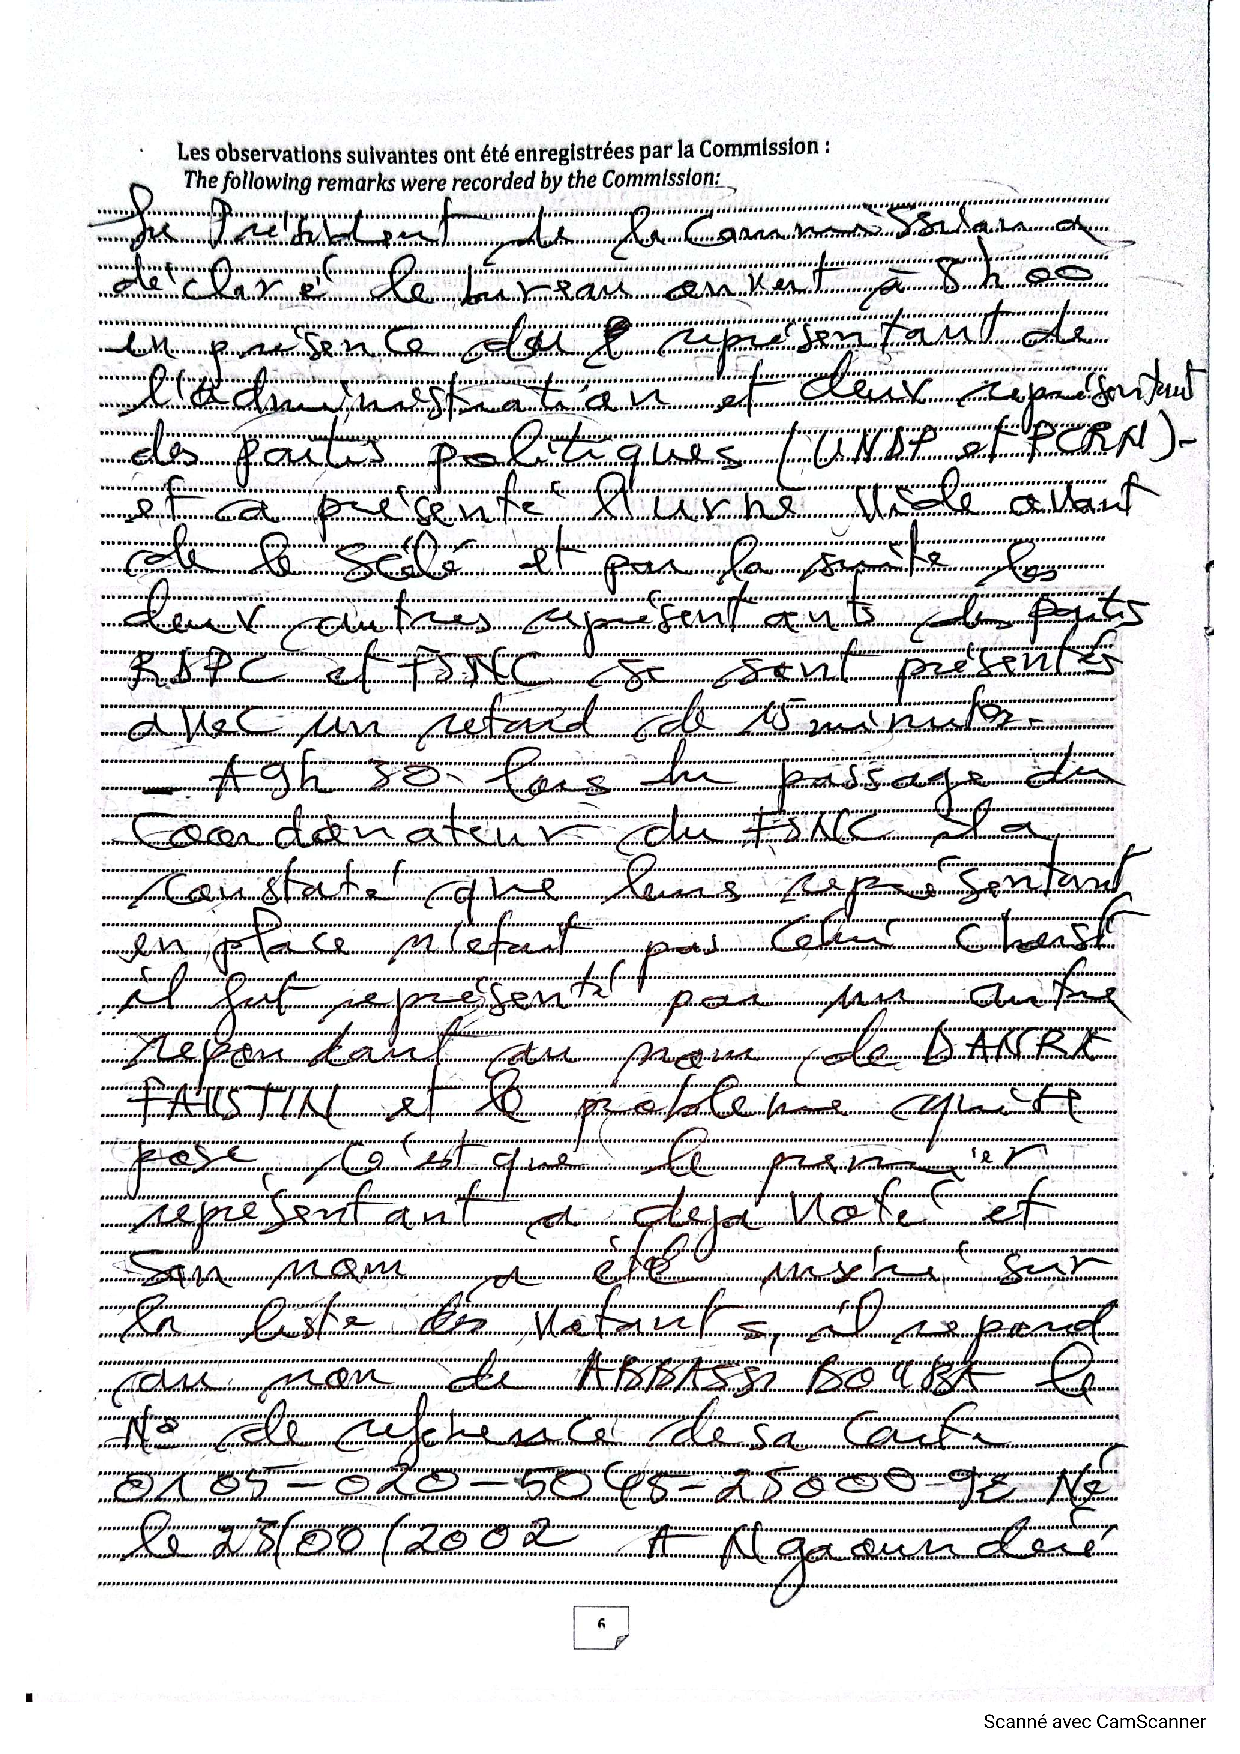 Les observations suivantes ont été enregistrées par la Commission :
The following remarks were recorded by the Commission:
Le Président de la Commission a
déclaré le bureau ouvert à 8h00
en présence du représentant de
l'administration et deux représentant
des partis politiques (UNDP et PCRN)-
et a présenté l'urne vide avant
de le Scélé et par la suite les
deux autres représentants de partis
RDPC et FSNC se sont présentés
avec un retard de 15 minutes.
- A 9h 30 lors du passage du
Coordonateur du FSNC il a
constaté que leurs représentant
en place n'etant pas Celui choisi
il fut représenté par un autre
repondant au nom de DANRA
FAUSTIN et le probleme qui se
pose, c'est que le premier
représentant a deja voté et
Son nom a été inscri sur
la liste des Votants, il repond
au non de ABBASSI BOUBA le
N° de reference de sa Carte
le /00/2002 A Ngaoundéré
6
Scanné avec CamScanner